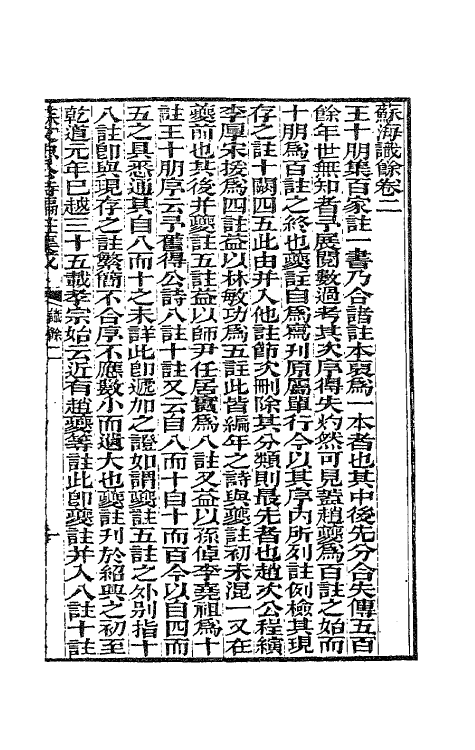 蘇海識餘卷二
王十朋集百家註一書乃合諸註本裒爲一本者也其中後先分合失傳五百
餘年世無知者予展閱數過考其次序得失灼然可見蓋趙夔爲百註之始而
十朋爲百註之終也夔註自爲寫刊原屬單行今以其序內所列註例檢其現
存之註十闕四五此由并入他註節次刪除其分類則最先者也趙次公程縯
李厚宋援爲四註益以林敏功爲五註此皆編年之詩與夔註初未混一又在
夔前也其後并夔註五註益以師尹任居實爲八註又益以孫倬李堯祖爲十
註王十朋序云予舊得公詩八註十註又云自八而十自十而百今以自四而
五之具悉通其自八而十之未詳此卽遞加之證如謂夔註五註之外別指十
八註卽與現存之註繁簡不合序不應數小而遺大也夔註刊於紹興之初至
乾道元年已越三十五載孝宗始云近有趙夔等註此卽夔註并入八註十註